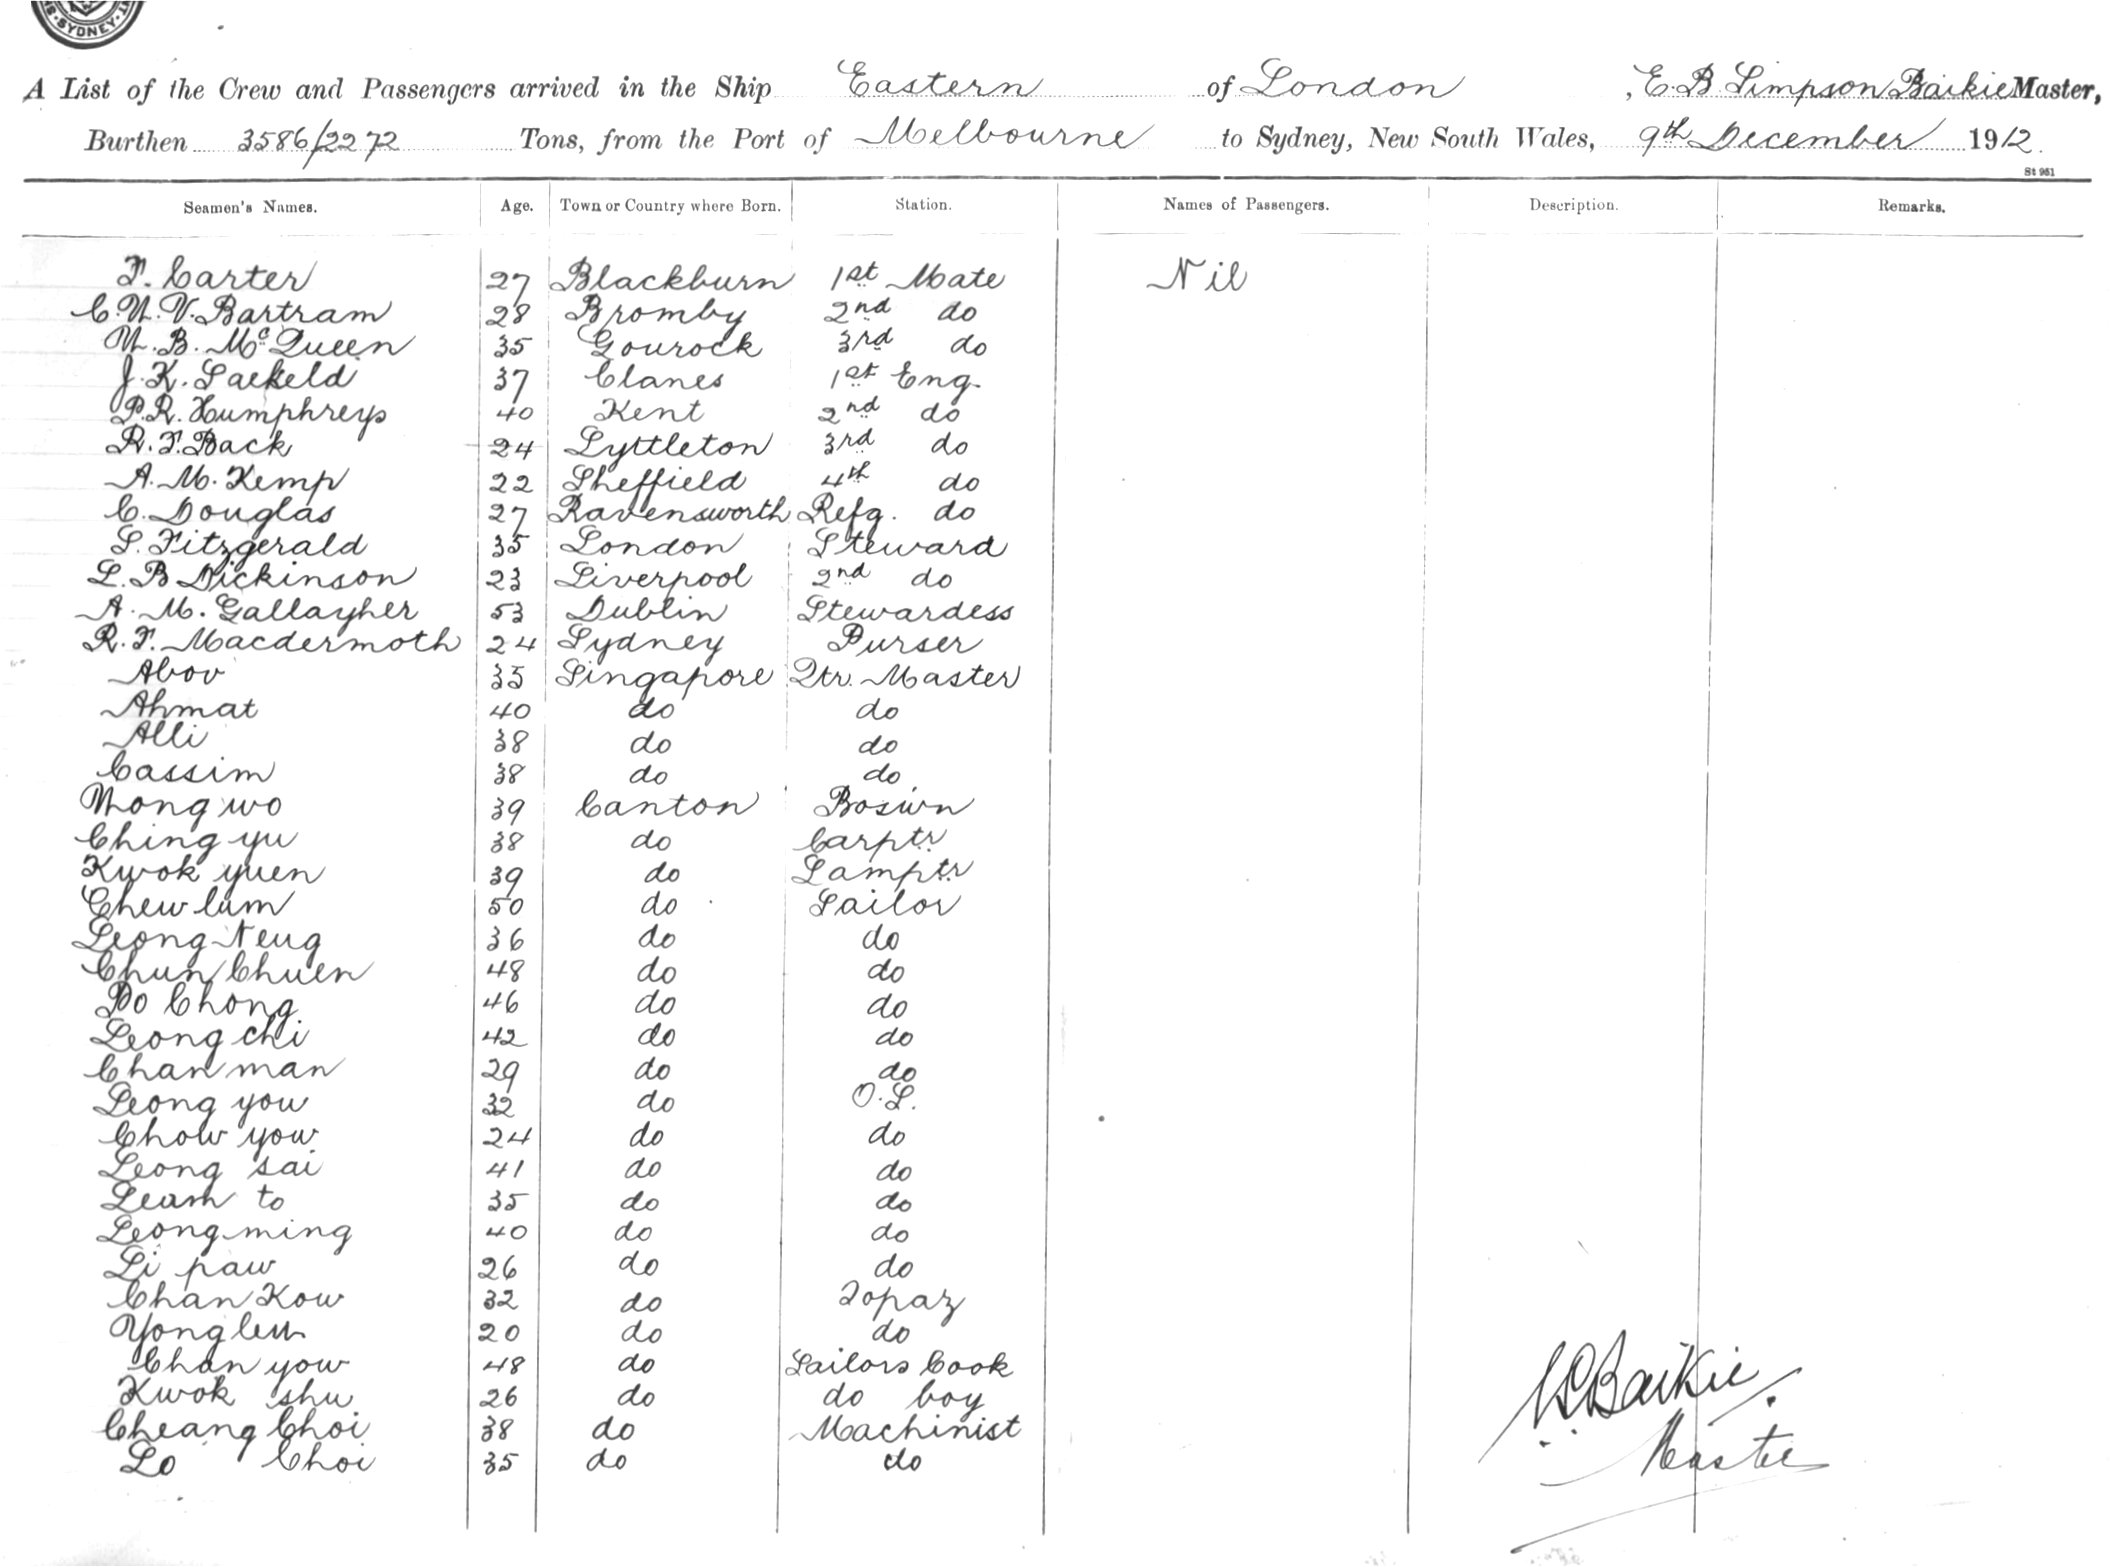 SYDNEY
A List of the Crew and Passengers arrived in the Ship Eastern of London, E. B. Simpson Baikie Master,
Burthen 3586/2272 Tons, from the Port of Melbourne to Sydney, New South Wales, 9th December 1912.
St 961
Seamen's Names. Age. Town or Country where Born. Station. Names of Passengers. Description. Remarks.
F. Carter 27 Blackburn 1st Mate Nil
C. W. V. Bartram 28 Bromby 2nd do
W. B. McQueen 35 Gourock 3rd do
J. K. Saekeld 37 Clanes 1st Eng.
P. R. Humphreys 40 Kent 2nd do
R. F. Back 24 Lyttleton 3rd do
A. M. Kemp 22 Sheffield 4th do
C. Douglas 27 Ravensworth Refg. do
S. Fitzgerald 35 London Steward
L. B Dickinson 23 Liverpool 2nd do
A. M. Gallagher 53 Dublin Stewardess
R. F. Macdermoth 24 Sydney Purser
Abov 35 Singapore Qtr. Master
Ahmat 40 do do
Alli 38 do do
Cassim 38 do do
Wong wo 39 Canton Bos'wn
Ching yu 38 do Carptr
Kwok yuen 39 do Lamptr
Chew lum 50 do Sailor
Leong Neug 36 do do
Chun Chuen 48 do do
Do Chong 46 do do
Leong chi 42 do do
Chan man 29 do do
Leong you 32 do O.S.
Chow you 24 do do
Leong sai 41 do do
Leam to 35 do do
Leong ming 40 do do
Li paw 26 do do
Chan Kow 32 do Topaz
Yong 20 do do
Chan yow 48 do Sailors Cook
Kwok shu 26 do do boy
Cheang Choi 38 do Machinist
Lo Choi 35 do do
Baikie
Master